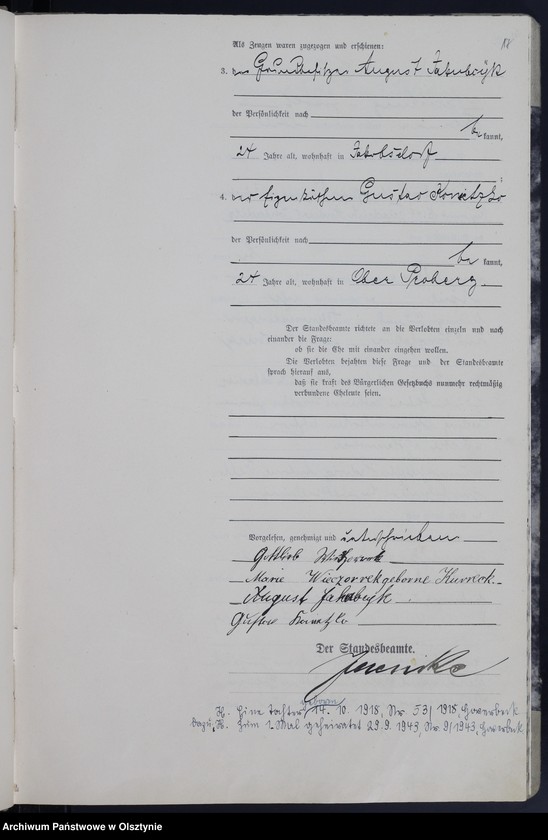 18
Als Zeugen waren zugezogen und erschienen:
3. der Grundbesitzer August Jakubczyk
der Persönlichkeit nach
be kannt,
24 Jahre alt, wohnhaft in Jakobsdorf
;
4. der Eigenkäthner Gustav Kornatzko
der Persönlichkeit nach
be kannt,
24 Jahre alt, wohnhaft in Ober Proberg
Der Standesbeamte richtete an die Verlobten einzeln und nach
einander die Frage:
ob sie die Ehe mit einander eingehen wollen.
Die Verlobten bejahten diese Frage und der Standesbeamte
sprach hierauf aus,
daß sie kraft des Bürgerlichen Gesetzbuchs nunmehr rechtmäßig
verbundene Eheleute seien.
Vorgelesen, genehmigt und unterschrieben
Gottlieb
Marie Wieczorrek geborne Kurreck.
August Jakubczyk
Gustav Kornatzko
Der Standesbeamte.
geboren
Eine Tochter 14. 10. 1918, Nr. 53/1918 Haverbeck
Zum 1. Mal geheiratet 29. 9. 1943, Nr. 9/1943, Haverbeck
Archiwum Państwowe w Olsztynie